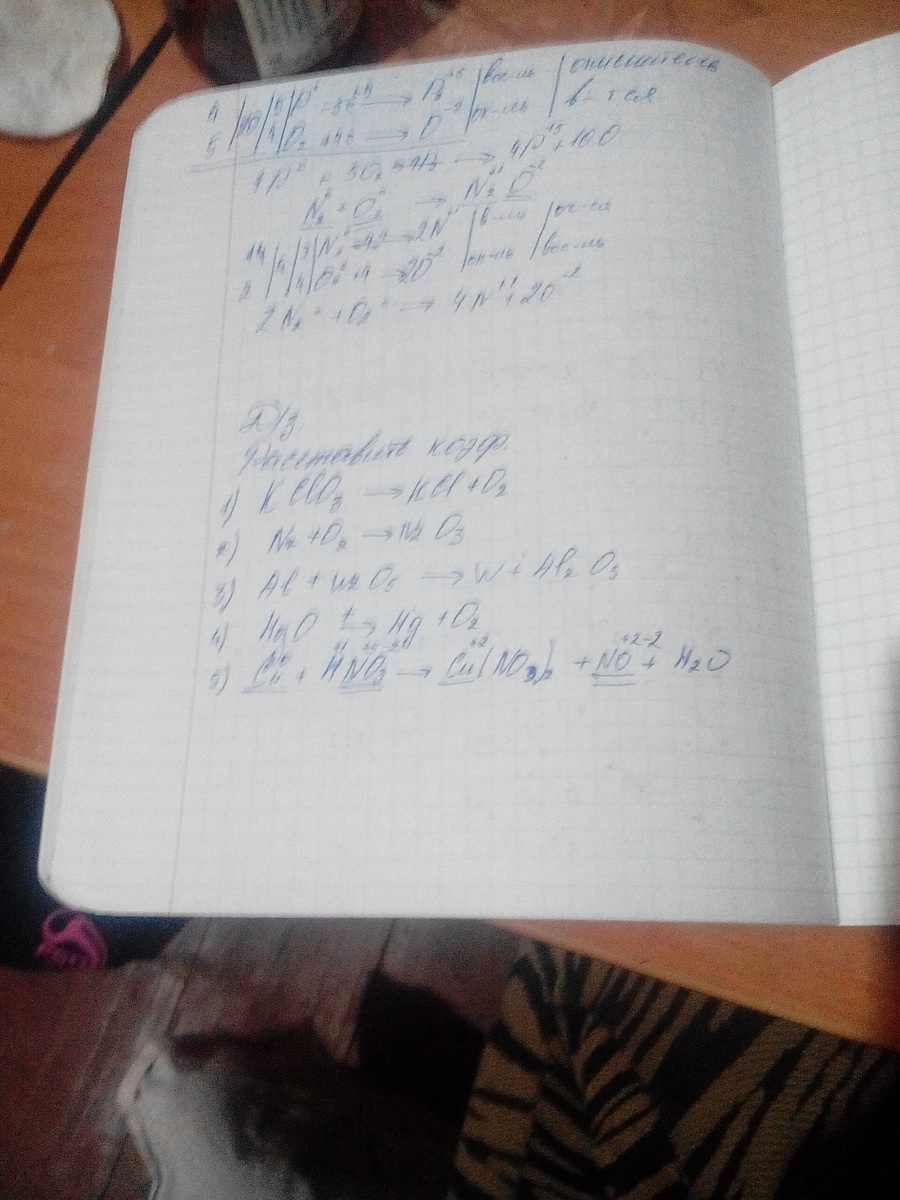 4 |20|5|P⁰ -5e → P⁺⁵ | вос-ль | окисляется
5 | | 4|O₂ +4e → O⁻² | ок-ль | в-тся
4P⁰ + 5O₂ → 4P⁺⁵ + 10O
N₂⁰ + O₂⁰ → N₂⁺¹O⁻²
N₂⁰ → 2N⁺¹ | в-ль | ок-ся
O₂⁰ +4 → 2O⁻² | ок-ль | вос-ль
2N₂⁰ + O₂⁰ → 4N⁺¹ + 2O⁻²
Д/З.
Расставить коэф.
1) KClO₃ → KCl + O₂
2) N₂ + O₂ → N₂O₃
3) Al + W₂O₅ → W + Al₂O₃
4) HgO →t Hg + O₂
5) Cu + HNO₃ → Cu⁺²(NO₃)₂ + N⁺²O⁻² + H₂O